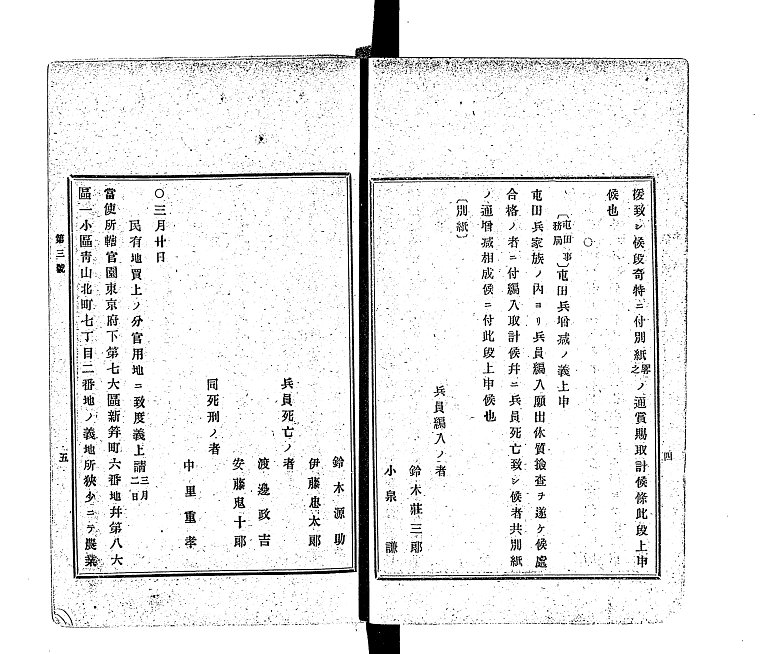 援致シ候段奇特ニ付別紙畧之ノ通賞賜取計候條此段上申
候也
○
〔屯田事務局〕屯田兵增减ノ義上申
屯田兵家族ノ内ヨリ兵員編入願出体質撿查ヲ遂ケ候處
合格ノ者ニ付編入取計候幷ニ兵員死亡致シ候者共別紙
ノ通增减相成候ニ付此段上申候也
〔別紙〕
兵員編入ノ者
鈴木莊三郎
小泉謙
四
鈴木源助
伊藤忠太郎
兵員死亡ノ者
渡邊政吉
安藤鬼十郎
同死刑ノ者
中里重孝
○三月廿日
民有地買上ノ分官用地ニ致度義上請三月二日
當使所轄官園東京府下第七大區新笄町六番地幷第八大
區一小區靑山北町七丁目二番地ノ義地所狹少ニテ農業
第三號
五